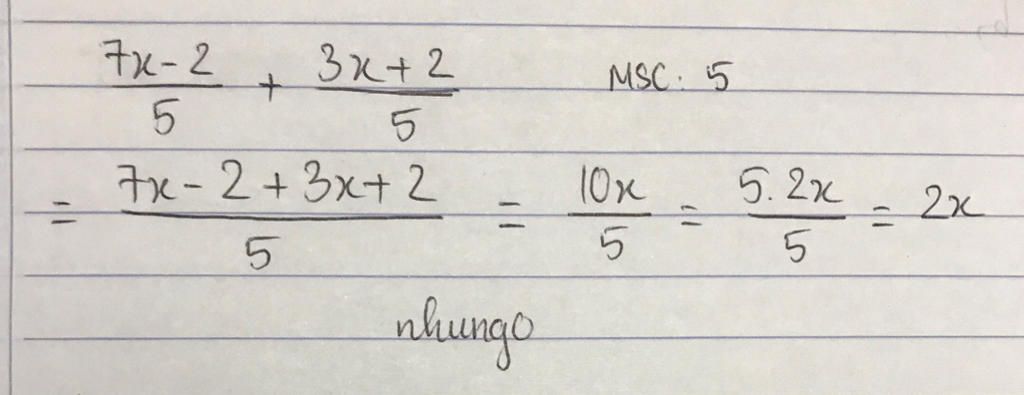 7x - 2 / 5 + 3x + 2 / 5 MSC: 5
= 7x - 2 + 3x + 2 / 5 = 10x / 5 = 5.2x / 5 = 2x
nhungo